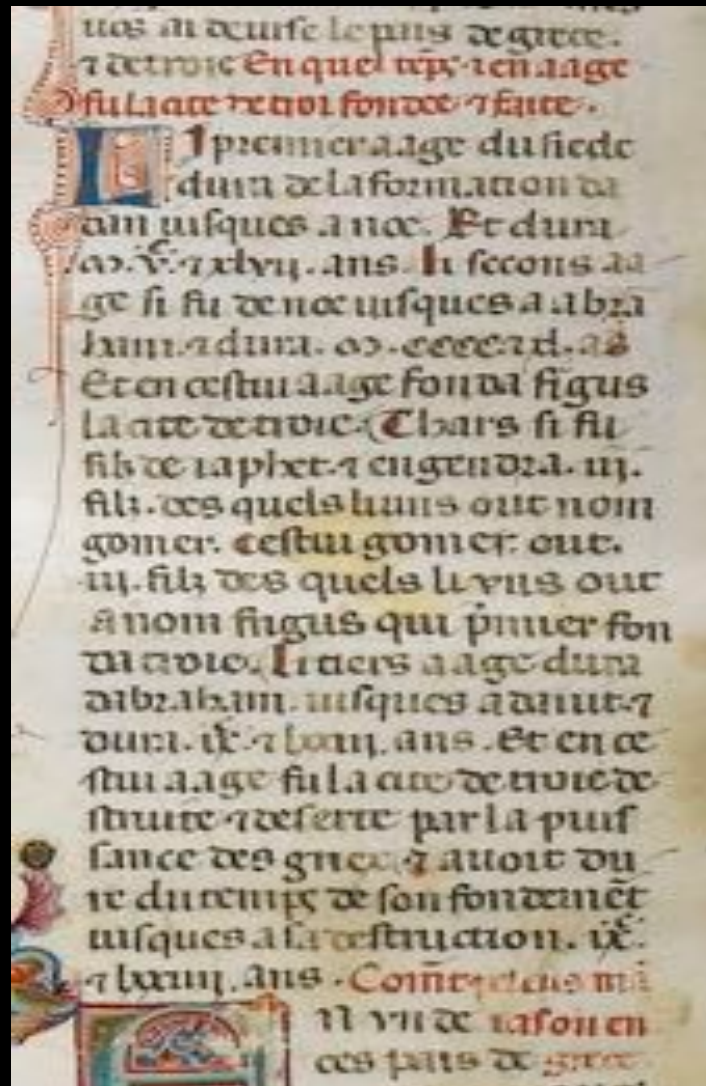 uos ai deuise le pais de grece.
⁊ de troie En quel tēps ⁊ en aage
fu la cite de troi fondee ⁊ faite.
LI premier aage du siecle
dura de la formation da
dam iusques a noe. Et dura
.ij. ans. li secons aa
ge si fu de noe iusques a abra
ham. ⁊ dura. cccc. ⁊ xl. ās
Et en cestui aage fonda figus
la cite de troie. Thars si fu
filz de iaphet. ⁊ engendra. iij.
filz. des quels li uns out nom
gomer. cestui gomer out.
iij. filz des quels li vns out
a nom frigus qui p̄mier fon
da troie. Li tiers aage dura
dabraham. iusques a dauit. ⁊
dura. ixᶜ. ⁊ lxxiij. ans. Et en ce
stui aage fu la cite de troie de
struite ⁊ deserte par la puis
sance des griex. ⁊ auoit du
re du temps de son fondemēt
iusques a sa destruction. ixᶜ.
⁊ lxxiiij. ans. Com̄t
vn de iason en
ces pais de grece